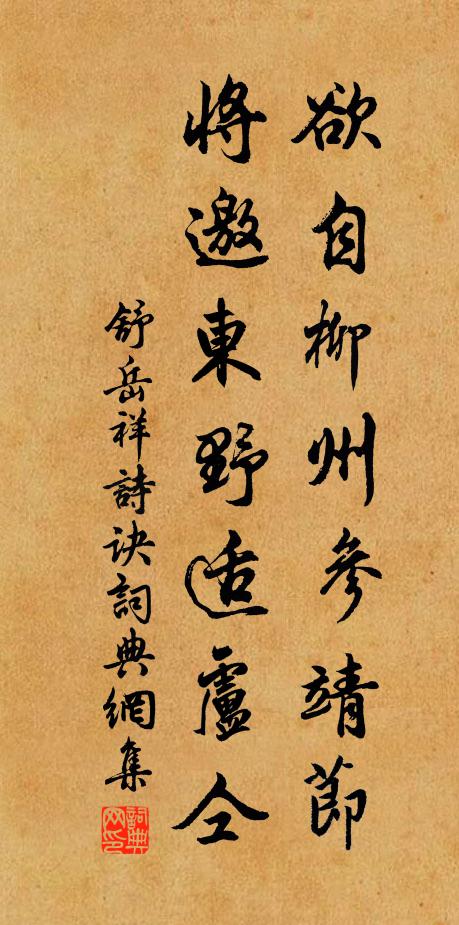 欲自柳州參靖節
將邀東野适盧仝
舒岳祥詩訣詞典網集
詞典网印